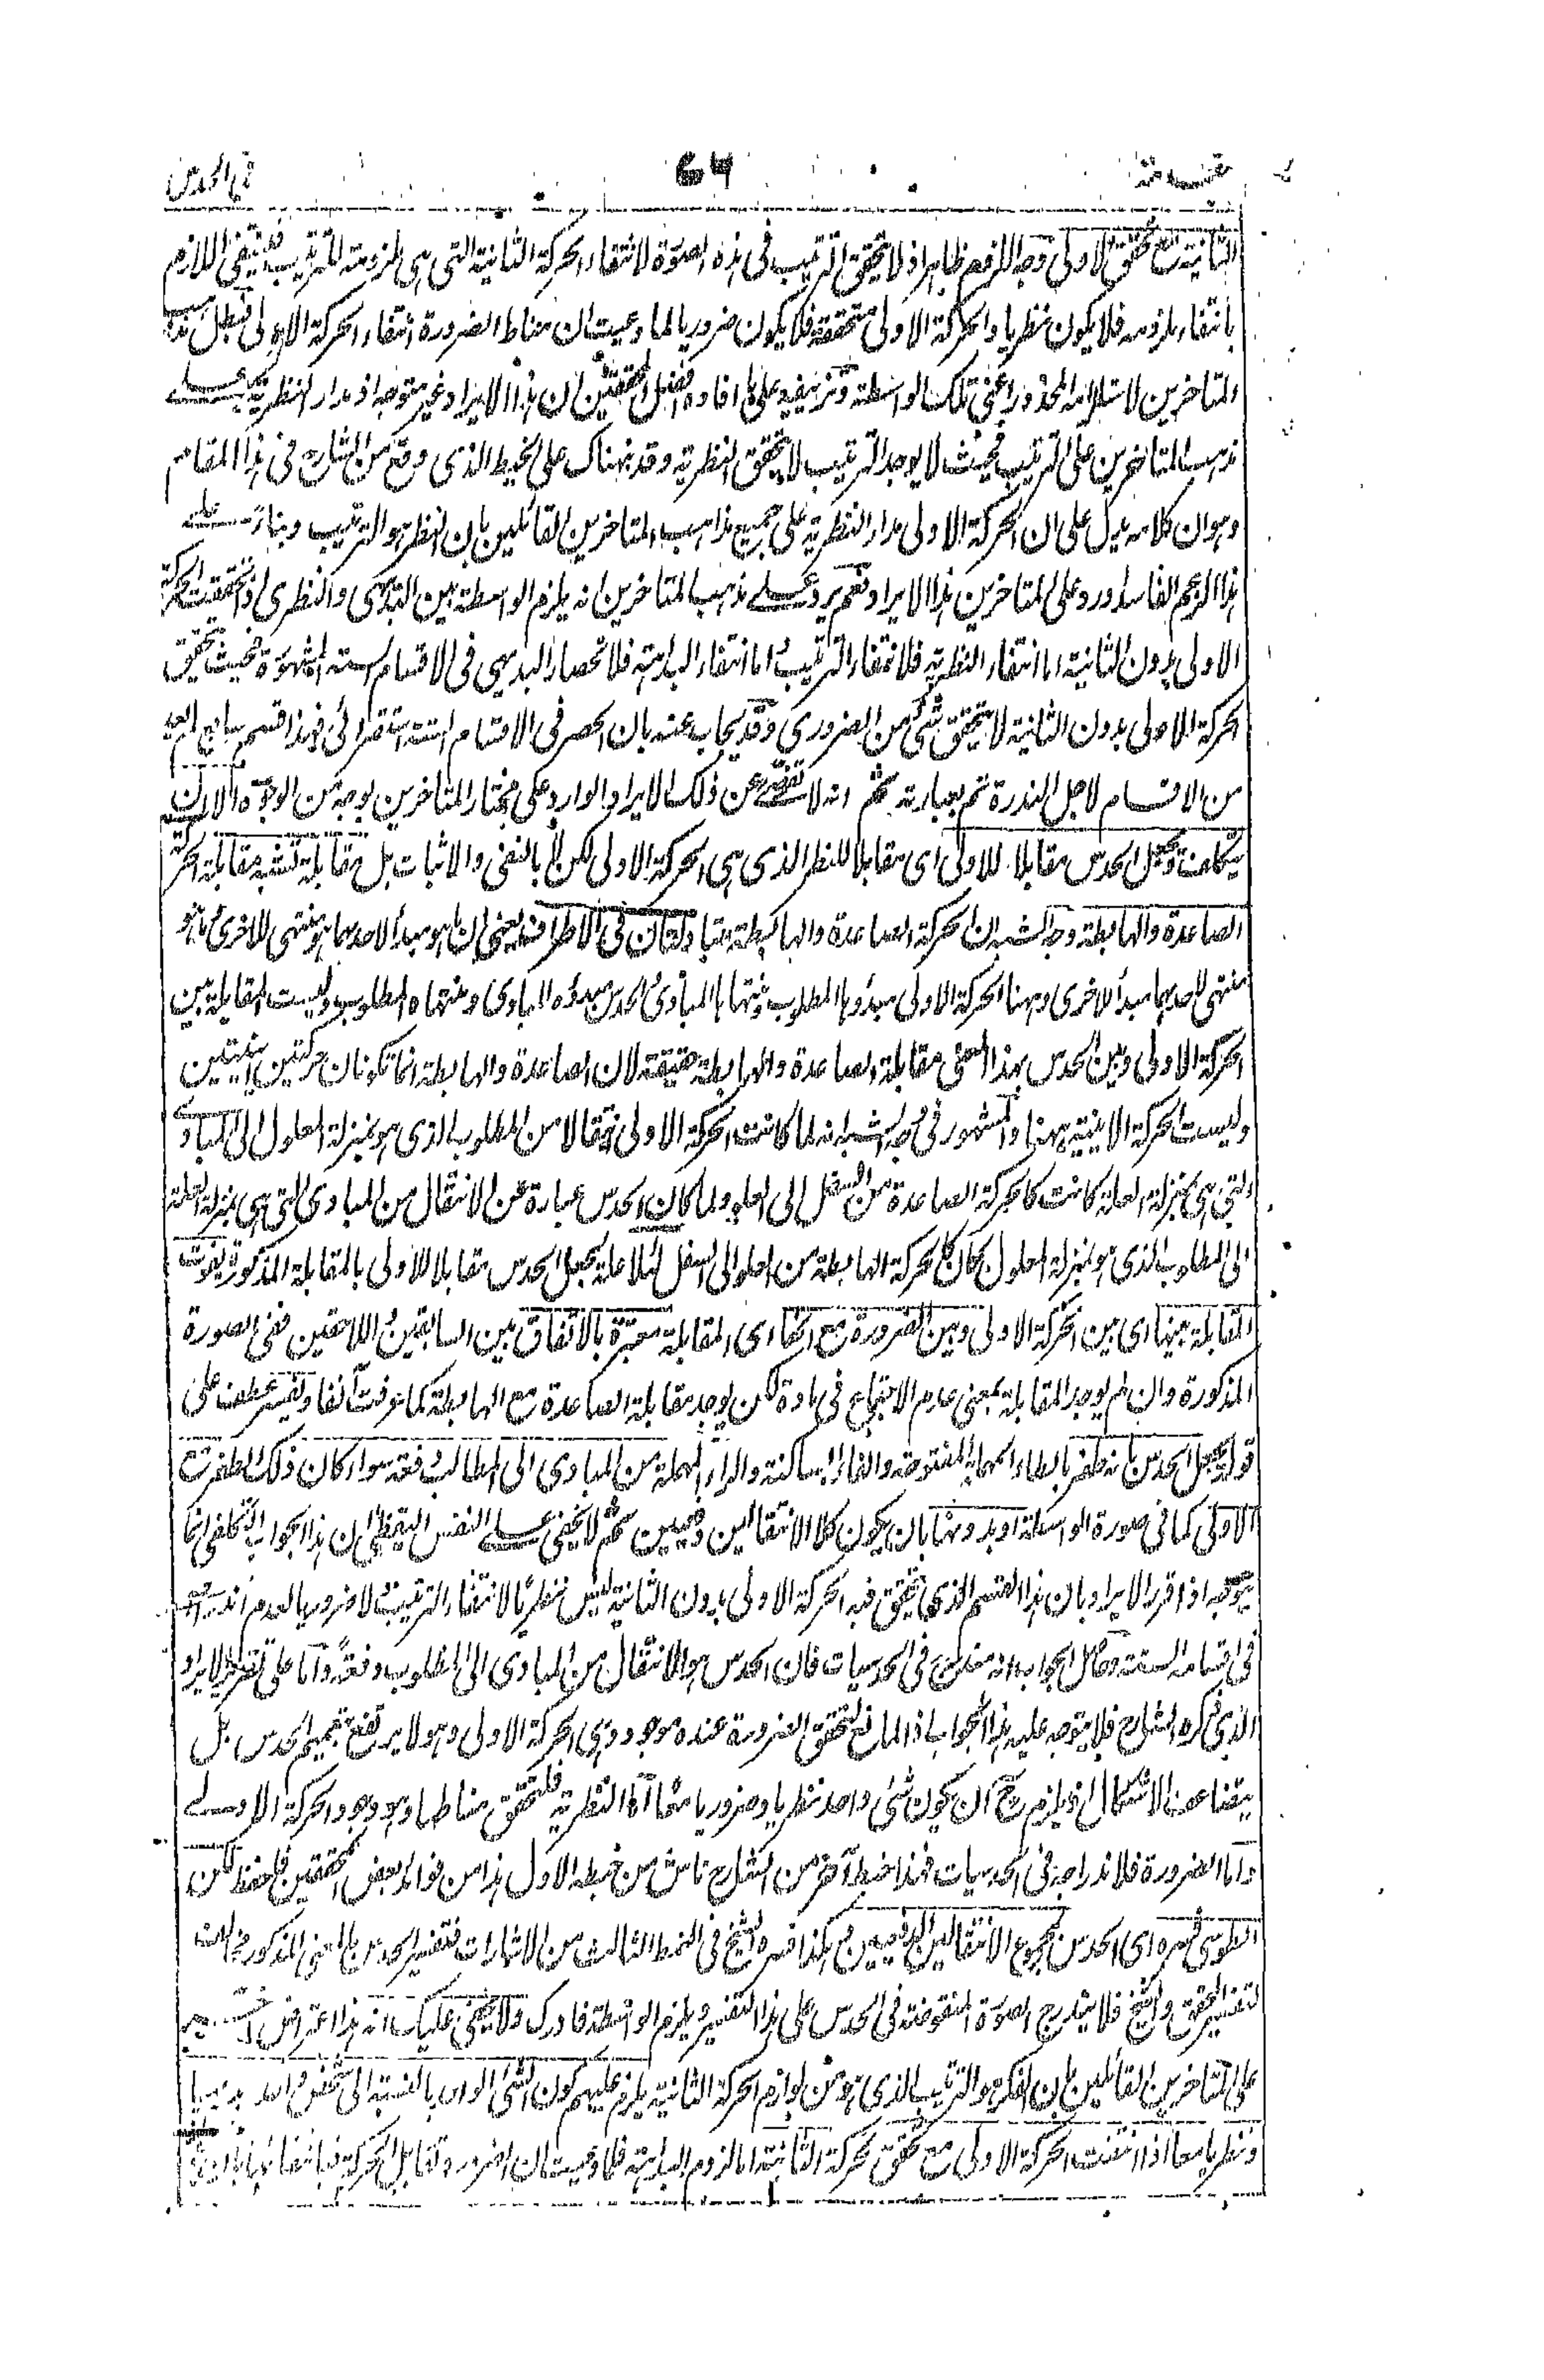 مقدمة ٦٧ في الحدس
الثانية مع تحقق الاولى وجه اللزوم ظاهر اذ لا يتحقق الترتيب في هذه الصورة لانتفاء الحركة الثانية التي هي ملزومة للترتيب فينتفي اللازم
بانتفاء ملزومه فلا يكون نظريا والحركة الاولى متحققة فلا يكون ضروريا لما وعيت ان مناط الضرورة انتفاء الحركة الاولى فبطل مذهب
المتاخرين لاستلزامه المحذور اعني تلك الواسطة وتزييفه على ما افاده بعض المحققين ان هذا الايراد غير متوجه اذ مدار النظرية على
مذهب المتاخرين على الترتيب فحيث لا يوجد الترتيب لا يتحقق النظرية وقد نبهناك على الخبط الذي وقع من الشارح في هذا المقام
وهو ان كلامه يدل على ان الحركة الاولى مدار النظرية على جميع مذاهب المتاخرين القائلين بان النظر هو الترتيب وبناءً على
هذا الزعم الفاسد اورد على المتاخرين هذا الايراد نعم يرد على مذهب المتاخرين انه يلزم الواسطة بين البديهي والنظري اذا تحققت الحركة
الاولى بدون الثانية اما انتفاء النظرية فلانتفاء الترتيب اما انتفاء البداهة فلانحصار البديهي في الاقسام الستة المشهورة فحيث تحقق
الحركة الاولى بدون الثانية لا يتحقق شئ من الضروري وقد يجاب عنه بان الحصر في الاقسام الستة استقرائي فهذا قسم سابع لم يعد
من الاقسام لاجل الندرة تم بعبارته ثم انه لا تفصي عن ذلك الايراد الوارد على مختار المتاخرين بوجه من الوجوه الا ان
يتكلف ويجعل الحدس مقابلا للاولى اى مقابلا للنظر الذي هي الحركة الاولى لكن لا بالنفي والاثبات بل مقابلة تشبه مقابلة الحركة
الصاعدة والهابطة وجه الشبه ان الحركة الصاعدة والهابطة متبادلتان في الاطراف يعني ان ما هو مبدأ لاحدهما هو منتهى للاخرى وما هو
منتهى لاحدهما مبدأ للاخرى وههنا الحركة الاولى مبدؤها المطلوب ومنتهاها المبادئ والحدس مبدؤه المبادئ ومنتهاه المطلوب وليست المقابلة بين
الحركة الاولى وبين الحدس بهذا المعنى مقابلة الصاعدة والهابطة حقيقة لان الصاعدة والهابطة انما تكونان حركتين اينيتين
وليست الحركة الاينية ههنا والمشهور في وجه الشبه انه لما كانت الحركة الاولى انتقالا من المطلوب الذي هو بمنزلة المعلول الى المبادئ
التي هي بمنزلة العلة كانت كالحركة الصاعدة من السفل الى العلو ولما كان الحدس عبارة عن الانتقال من المبادئ التي هي بمنزلة العلة
الى المطلوب الذي هو بمنزلة المعلول كان كالحركة الهابطة من العلو الى السفل لئلا علة يجعل الحدس مقابلا للاولى بالمقابلة المذكورة يفوت
المقابلة بينها اى بين الحركة الاولى وبين الضرورة مع انها اى المقابلة معتبرة بالاتفاق بين السابقين واللاحقين ففي الصورة
المذكورة وان لم يوجد المقابلة بمعنى عدم الاجتماع في مادة لكن يوجد مقابلة الصاعدة مع الهابطة كما عرفت آنفا ويفسر عطف على
قوله يجعل الحدس بانه طفر بالطاء المهملة المفتوحة والفاء الساكنة والراء المهملة من المبادئ الى المطالب دفعة سواء كان ذلك الطفر مع
الاولى كما في صورة الواسطة او بدونها بان يكون كلا الانتقالين دفعيين ثم لا يخفى على النفس اليقظى ان هذا الجواب التكلفي انما
يتوجه اذا قرر الايراد بان هذا القسم الذي يتحقق فيه الحركة الاولى بدون الثانية ليس نظريا لانتفاء الترتيب ولا ضروريا لعدم اندراجه
في اقسامه الستة وحاصل الجواب انه مندرج في الحدسيات فان الحدس هو الانتقال من المبادئ الى المطلوب دفعةً واما على تقرير الايراد
الذي ذكره الشارح فلا يتوجه عليه هذا الجواب اذ المانع لتحقق الضرورة عنده موجود وهي الحركة الاولى وهو لا يرتفع بتعميم الحدس بل
يتضاعف الاشكال اذ يلزم ح ان يكون شئ واحد نظريا وضروريا معا اما النظرية فلتحقق مناطها وهو وجود الحركة الاولى
واما الضرورة فلاندراجه في الحدسيات فهذا خبط آخر من الشارح ناش من خبطه الاول هذا من فوائد بعض المحققين فاحفظ لكن
الطوسي فسره اى الحدس بمجموع الانتقالين الدفعيين هكذا فسره الشيخ في النمط الثالث من الاشارات فتفسير الحدس بالمعنى المذكور مخالف
لتفسير المحقق والشيخ فلا يندرج الصورة المنقوضة في الحدس على هذا التفسير ويلزم الواسطة فادرك ولا يخفى عليك انه هذا اعتراض اخر
على المتاخرين القائلين بان الفكر هو الترتيب الذي هو من لوازم الحركة الثانية يلزم عليهم كون الشئ الواحد بالنسبة الى شخص واحد بديهيا
ونظريا معا اذا انتفت الحركة الاولى مع تحقق الحركة الثانية اما لزوم البداهة فلما وعيت ان الضرورة تقابل الحركة